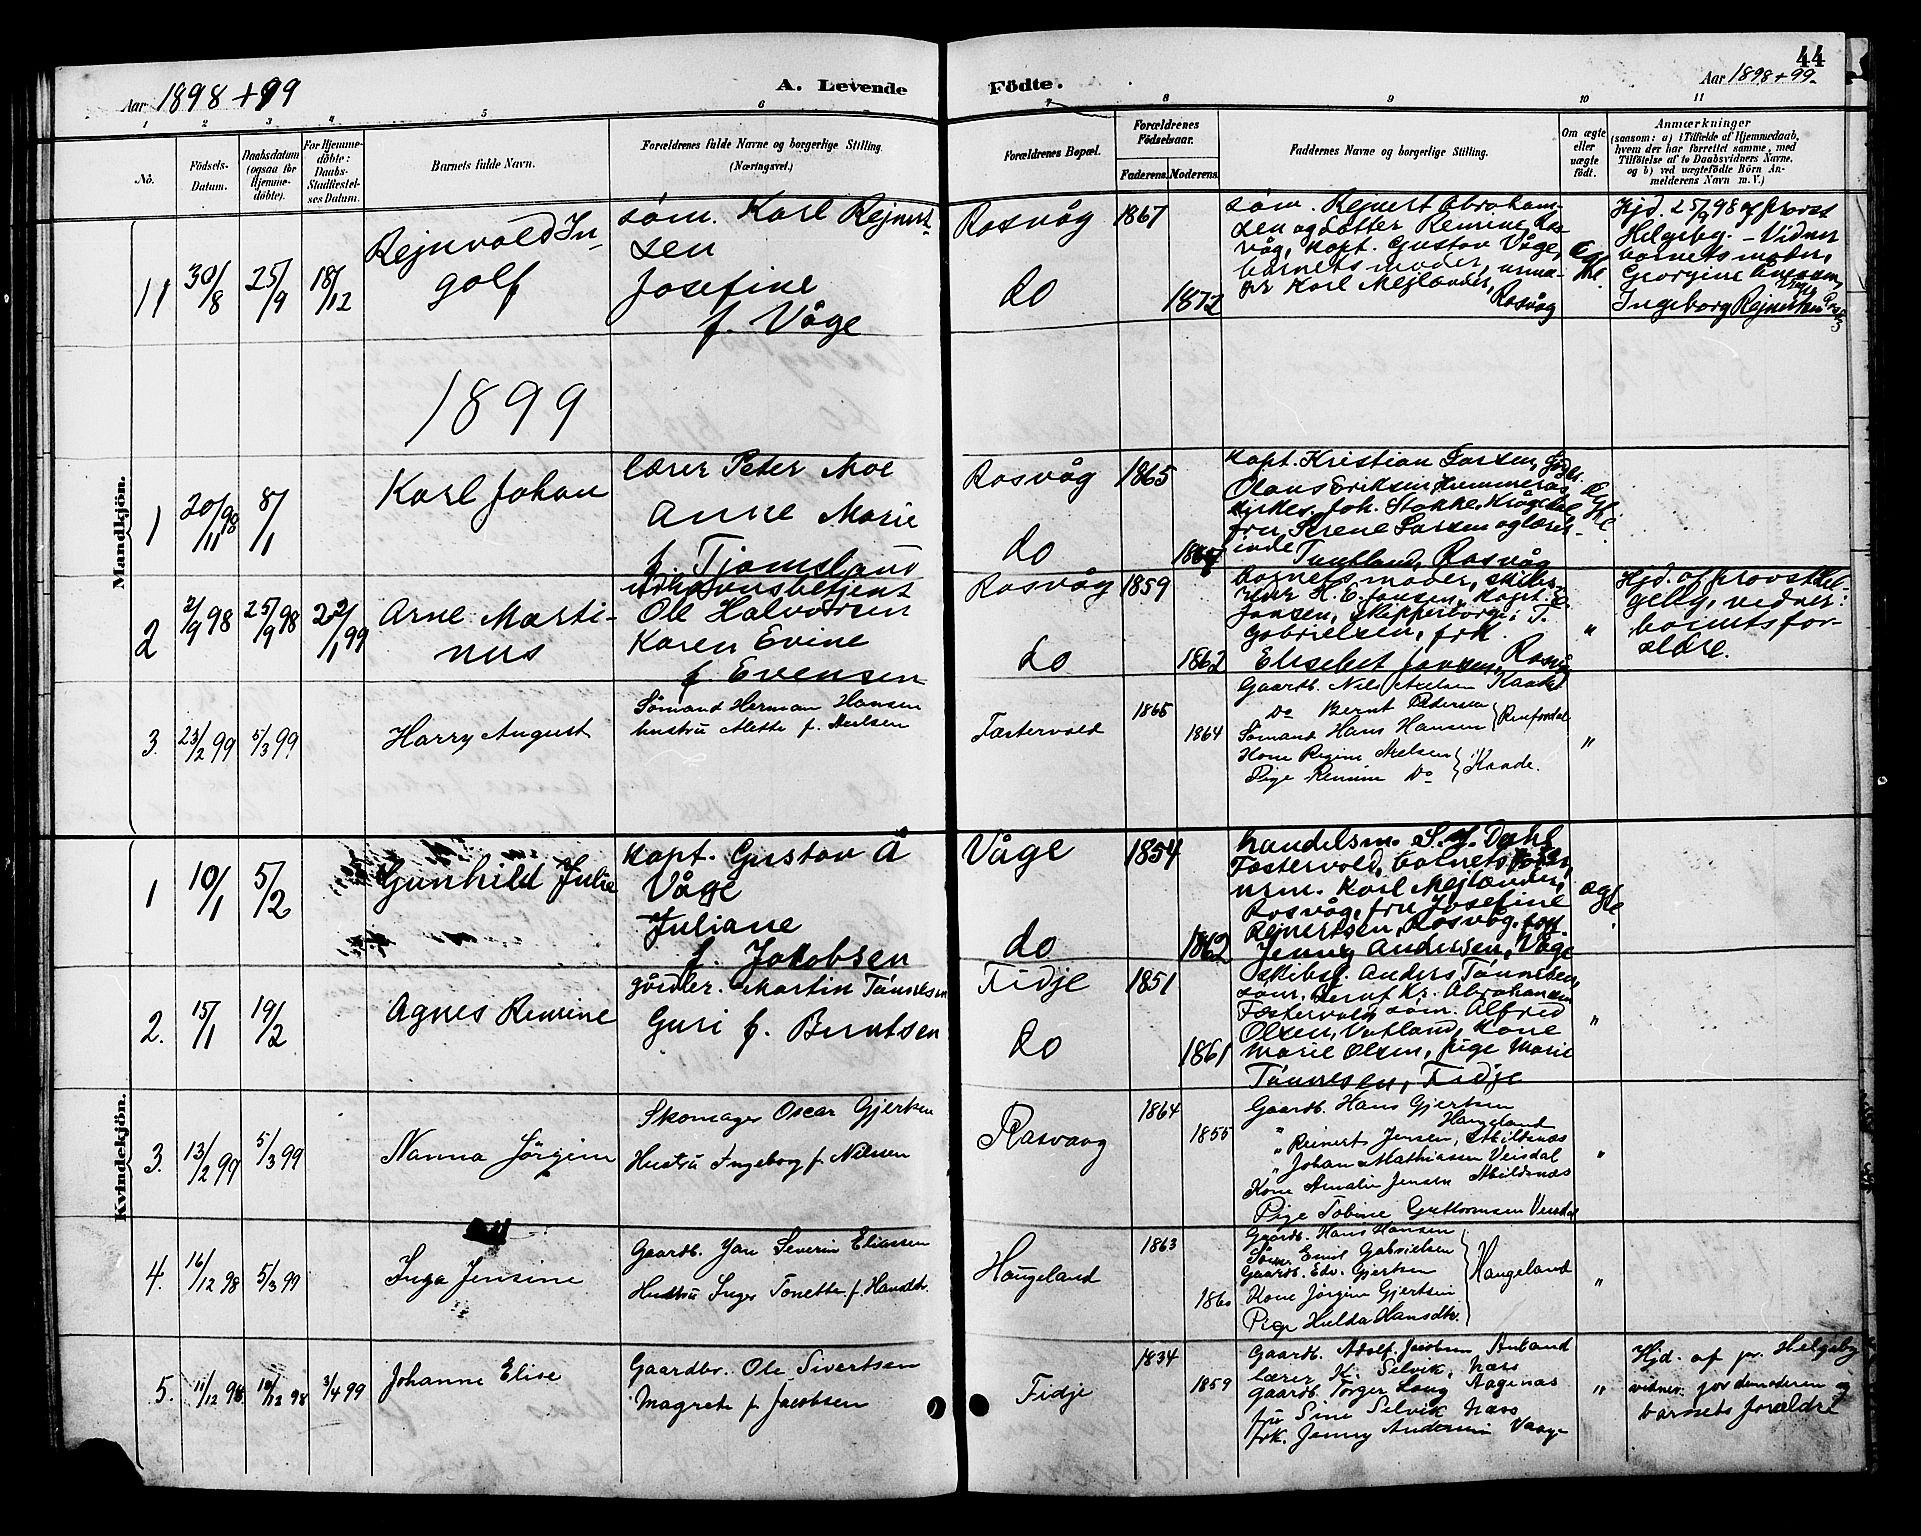 44
Aar 1898+99
A. Levende Födte.
Aar 1898+99.
1 2 3 4 5 6 7 8 9 10 11
No.
Födsels-
Datum.
Daabsdatum
(ogsaa for
Hjemme-
döbte).
For Hjemme-
döbte:
Daabs-
Stadfæstel-
ses Datum.
Barnets fulde Navn.
Forældrenes fulde Navne og borgerlige Stilling
(Næringsvei.)
Forældrenes Bopæl.
Forældrenes
Födselsaar.
Faderens.
Moderens.
Faddernes Navne og borgerlig Stilling.
Om ægte
eller
uægte
födt.
Anmærkninger
(saasom: a) i Tilfælde af Hjemmedaab,
hvem der har forrettet samme, med
Tilföielse af to Daabsvidners Navne.
og b) ved uægtefödte Börn An-
melderens Navn m. V.)
Mandkjön.
11
30/8
25/9
18/12
Rejnvold In-
golf
söm. Karl Rejnert-
sen
Josefine
f. Våge
Rasvåg
do
1867
1872
söm. Rejnert Abraham-
sen og datter Remine Ras-
våg, kapt. Gustav Våge,
barnets moder, urma-
ker Karl Mejlænder,
Rasvåg
Egte.
Hjd. 25/9 98 af provst
Helgeby. - Vidner
barnets moder,
Georgine
Ingeborg Rejnertsen
1899
1
20/11 98
8/1
Karl Johan
lærer Peter Moe
Anne Marie
f. Tjomsland
Rasvåg
do
1865
kapt. Kristian Larsen,
Olaus Eriksen
kirkes. Joh. Stokke, Krågedal
fru Serene Larsen og lærer-
inde Tuntland, Rasvåg
Egte.
2
2/9 98
25/9 98
22/1 99
Arne Marti-
nus
udhavnsbetjent
Ole Halvorsen
Karen Evine
f. Evensen
Rasvåg
do
1859
1862
barnets moder, skibs-
reder H. E. Jansen, kapt. E.
Jansen, Skipperborg; T.
Gabrielsen, frk.
Elisebet Jansen, Rasvåg
"
Hjd. af provst Hel-
geby, vidner:
barnets for-
eldre.
3.
23/2 99
5/3 99
Harry August
Sömand Herman Hansen
hustru Alette f. Nielsen
Fastervold
1865
1864
Gaardb. Nils Axelsen Kaade
Do Bernt Pedersen
Sömand Hans Hansen
Kone Regine Axelsen
Pige Remine Do Kaade.
"
Kvindekjön.
1
10/1
5/2
Gunhild Julie
kapt. Gustav A
Våge
Juliane
f. Jakobsen
Våge
do
1854
1862
handelsm. S. J. Dahl
Fastervold, barnets fader,
urm. Karl Mejlænder,
Rasvåg, fru Josefine
Rejnertsen, Rasvåg, frk.
Jenny Andersen, Våge
ægte.
2.
15/1
19/2
Agnes Remine
gårdbr. Martin Tönnesen
Guri f. Berntsen
Fidje
do
1851
1861
skibsf. Anders Tönnesen
söm. Bernt Kr. Abrahamsen
Fastervold, söm. Alfrid
Olsen, Vatland, kone
Marie Olsen, pige Marie
Tönnesen, Fidje
"
3.
13/2 99
5/3 99
Nanna Jörgine
Skomager Oscar Gjertsen
Hustru Ingeborg f. Nilsen
Rasvaag
1864
1855
Gaardb. Hans Gjertsen
Haugeland
" Reinert Jensen, Abildsnæs
" Johan Mathiasen Veisdal
Kone Amalie Jensen Abildsnæs
Pige Tobine Guttormsen Veisdal
"
4.
16/12 98
5/3 99
Inga Jensine
Gaardb. Jan Severin Eliassen
Hustru Inger Tonette f. Hansdtr.
Haugeland
1863
1860
Gaardb. Hans Hansen
Söm. Emil Gabrielsen
Gaardb. Edv. Gjertsen
Kone Jörgine Gjertsen
Pige Hulda Hansdtr.
Haugeland
"
5.
11/12 98
18/12 98
3/4 99
Johanne Elise
Gaardbr. Ole Sivertsen
Magrete f. Jacobsen
Fidje
1834
1859
Gaardb. Adolf Jacobsen Anland
lærer K. Selvik, Næss
gaardb. Torger Long Aagenæs
fru Sine Selvik Næss
frk. Jenny Andersen Vaage
"
Hjd. af pr. Helgeby
vidner jordemoderen og
barnets forældre